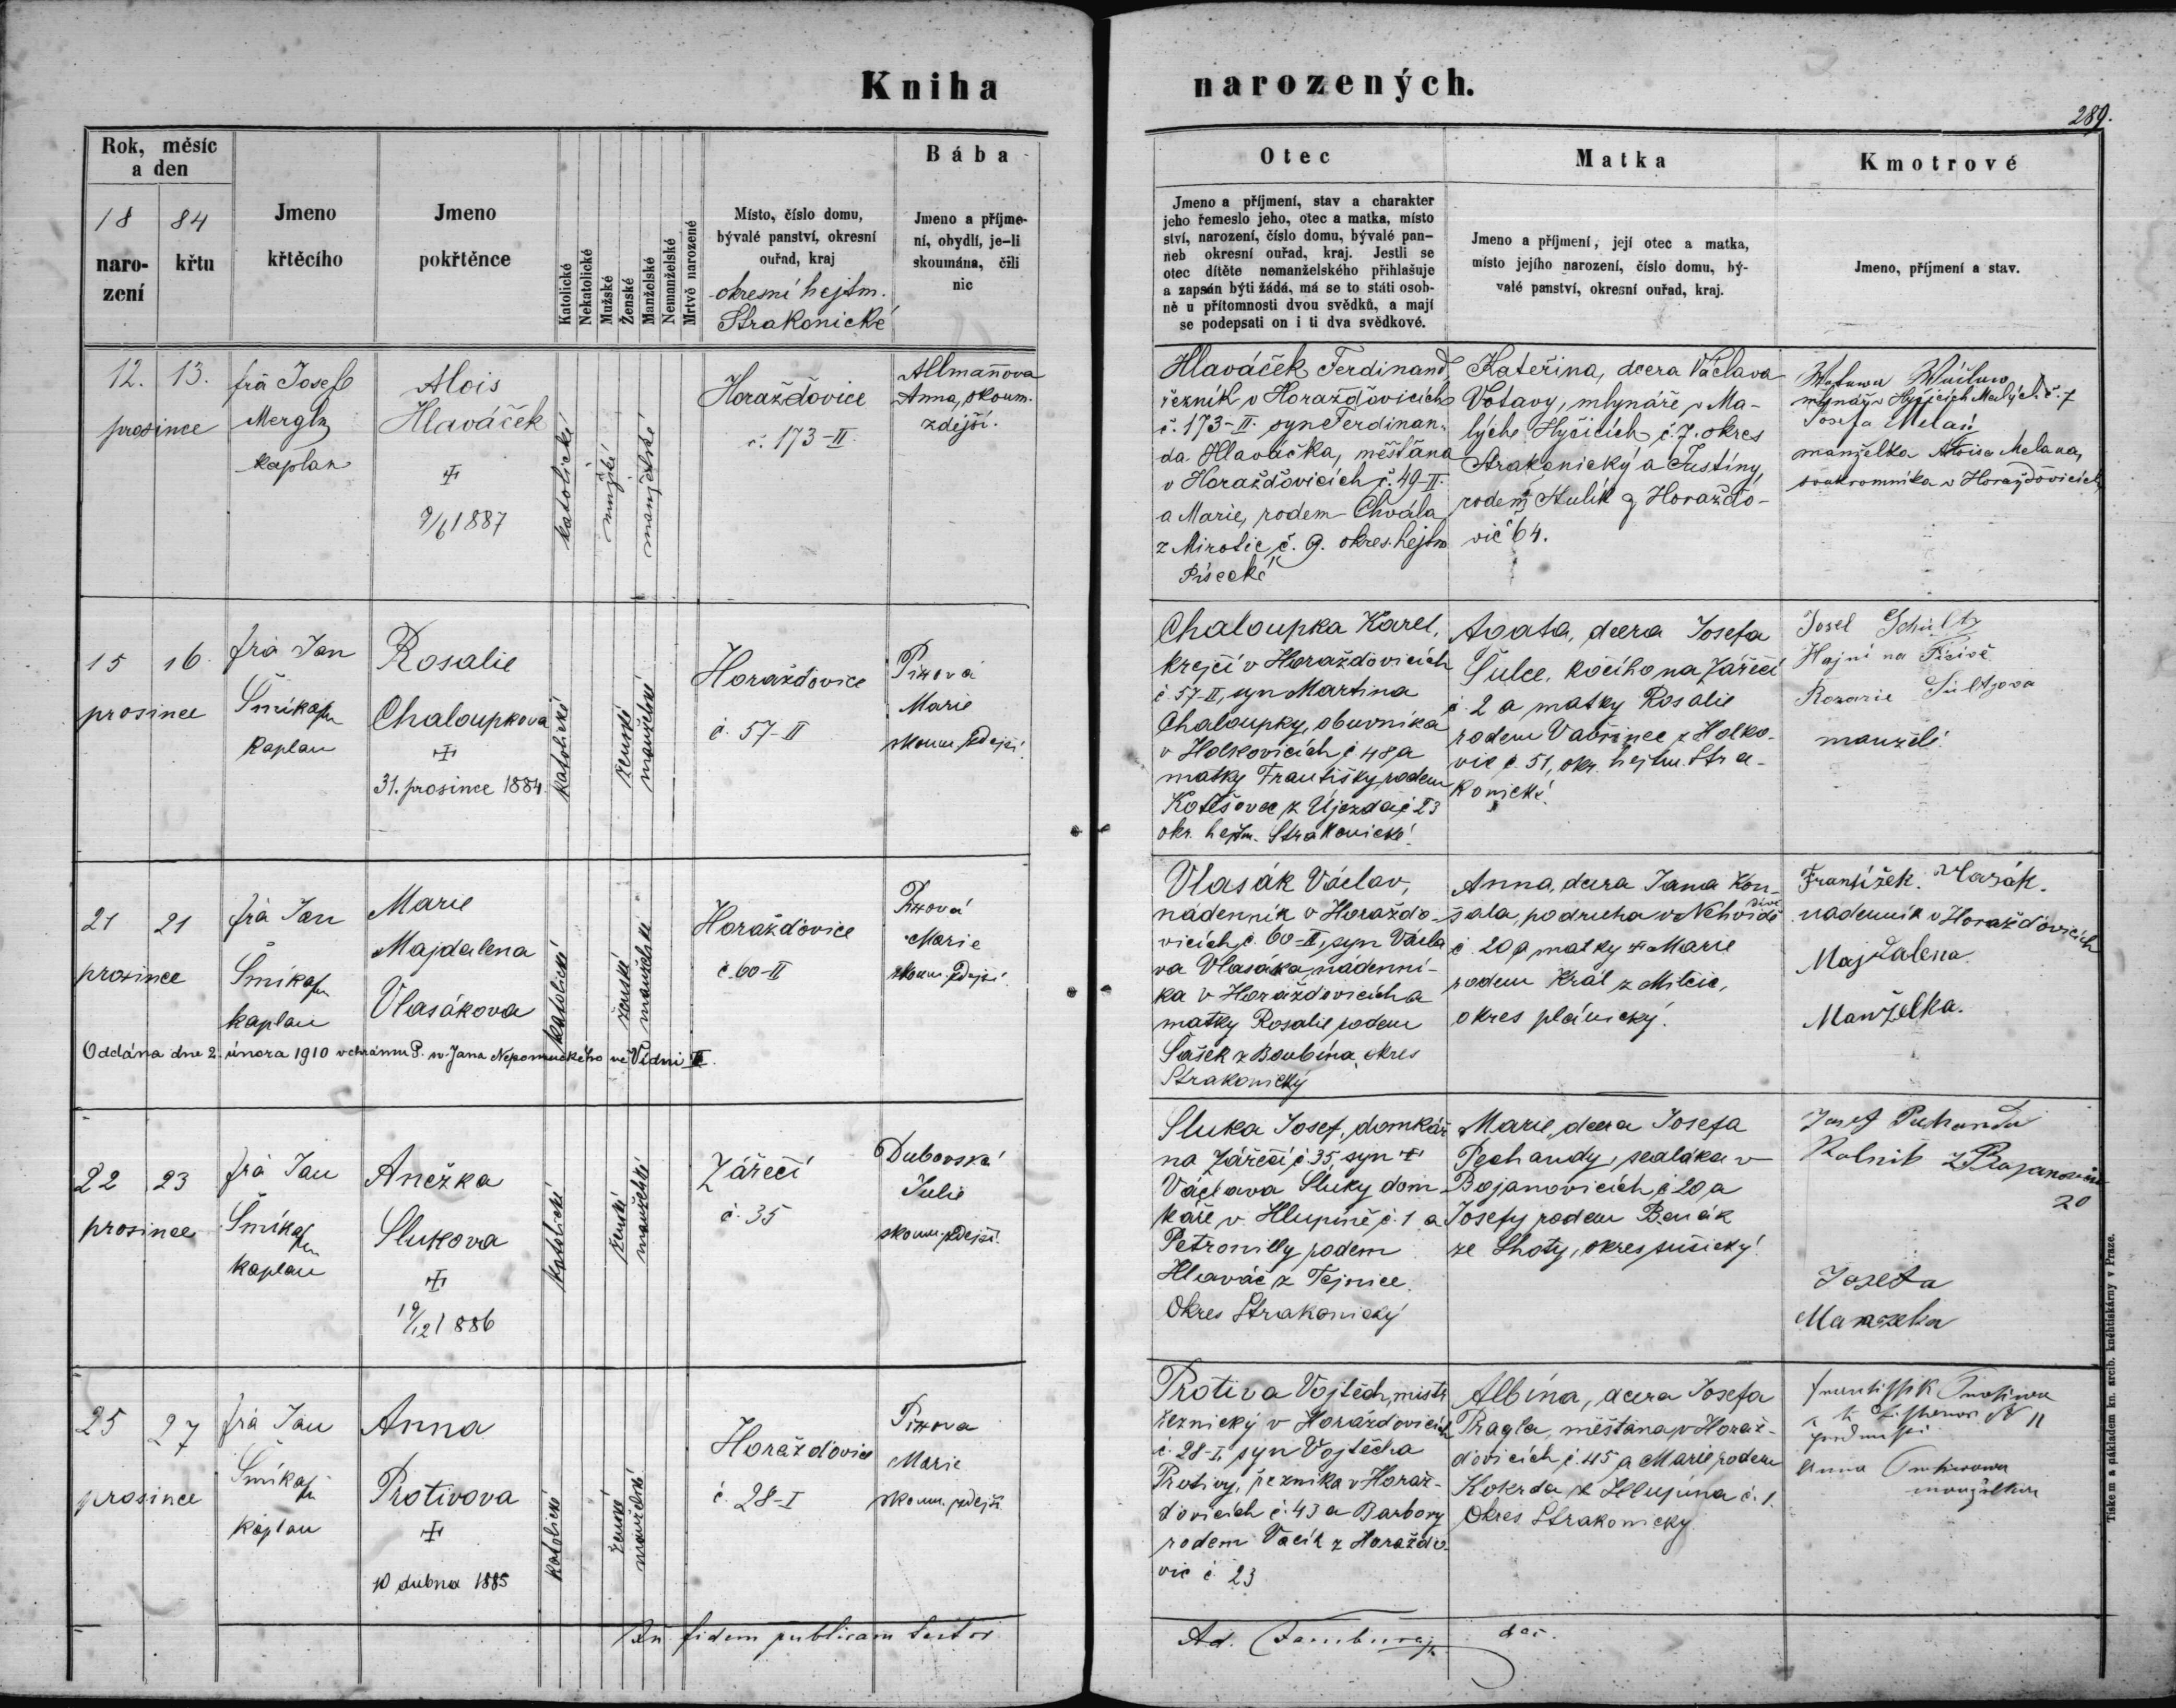 Kniha narozených.
289.
Rok, měsíc
a den
18 84
naro-
zení
křtu
Jmeno
křtěcího
Jmeno
pokřtěnce
Katolické
Nekatolické
Mužské
Ženské
Manželské
Nemanželské
Mrtvě narozené
Místo, číslo domu,
bývalé panství, okresní
ouřad, kraj
okresní hejtm.
Strakonické
Bába
Jmeno a příjme-
ní, obydlí, je-li
skoumána, čili
nic
Otec
Jmeno a příjmení, stav a charakter
jeho řemeslo jeho, otec a matka, místo
ství, narození, číslo domu, bývalé pan-
neb okresní ouřad, kraj. Jestli se
otec dítěte nemanželského přihlašuje
a zapsán býti žádá, má se to státi osob-
ně u přítomnosti dvou svědků, a mají
se podepsati on i ti dva svědkové.
Matka
Jmeno a příjmení, její otec a matka,
místo jejího narození, číslo domu, bý-
valé panství, okresní ouřad, kraj.
Kmotrové
Jmeno, příjmení a stav.
12. 13.
prosince
frà Josef
Mergl
kaplan
Alois
Hlaváček
9/6 1887
katolické
mužské
manželské
Horažďovice
č. 173-II.
Allmannova
Anna, skoum.
zdejší.
Hlaváček Ferdinand,
řezník v Horažďovicích
č. 173-II. syn Ferdinan-
da Hlaváčka, měšťana
v Horažďovicích č. 49-II.
a Marie, rodem Chvála
z Mirotic č. 9. okres. hejtm
Písecké
Kateřina, dcera Václava
Votavy, mlynáře v Ma-
lých Hyčicích č. 7. okres
Strakonický a Justíny,
rodem Hulík z Horažďo-
vic 64.
Wotawa Wáclaw
mlynář v Hyčicích Malých č. 7
Josefa Melan
manželka Aloisa Melana,
soukromníka v Horažďovicích
15 16.
prosince
frà Jan
Šmíkal
kaplan
Rosalie
Chaloupkova
31. prosince 1884
katolické
ženské
manželské
Horažďovice
č. 57-II
Pixová
Marie
skoum. zdejší
Chaloupka Karel,
krejčí v Horažďovicích
č 57-II, syn Martina
Chaloupky, obuvníka
v Holkovicích č 48 a
matky Františky, rodem
Kotěšovec z Újezda č 23
okr. hejtm. Strakonické
Agata, dcera Josefa
Šulce, kočího na Zářečí
č. 2 a matky Rosalie
rodem Vavřinec z Holko-
vic č. 51, okr. hejtm. Stra-
konické.
Josef Schultz
Hajní na
Rozarie Šultzova
manželé.
21 21
prosince
frà Jan
Šmíkal
kaplan
Marie
Majdalena
Vlasákova
katolické
ženské
manželské
Horažďovice
č. 60-II
Pixová
Marie
skoum. zdejší
Oddána dne 2. února 1910 v chrámu P. sv. Jana Nepomuckého ve Vídni II.
Vlasák Václav,
nádenník v Horažďo-
vicích č. 60-II, syn Václa
va Vlasáka nádenní-
ka v Horažďovicích a
matky Rosalie rodem
Sašek z Boubína, okres
Strakonický
Anna, dcera Jana Kon-
šala, podruha v Nehodivě
č. 20 a matky Marie
rodem Král z Milčic,
okres plánický.
František Vlasák.
nádenník v Horažďovicích
Majdalena
Manželka.
22 23
prosince
frà Jan
Šmíkal
kaplan
Anežka
Slukova
19/12 1886
katolické
ženské
manželské
Zářečí
č. 35
Dubovská
Julie
skoum. zdejší.
Sluka Josef, domkář
na Zářečí č 35 syn
Václava Sluky dom-
káře v Hlupíně č. 1 a
Petronilly rodem
Hlaváč z Tejnice.
Okres Strakonický
Marie, dcera Josefa
Pechandy, sedláka v
Bojanovicích č 20 a
Josefy rodem Benák
ze Lhoty, okres sušický.
Josef Pechanda
Rolník z Bojanovic
20
Josefa
Manzelka
25 27
prosince
frà Jan
Šmíkal
kaplan
Anna
Protivova
10 dubna 1885
katolické
ženské
manželské
Horažďovice
č. 28-I
Pixova
Marie
skoum. zdejší.
Protiva Vojtěch, mistr
řeznický v Horažďovicích
č. 28-I, syn Vojtěcha
Protivy, řezníka v Horaž-
ďovicích č. 43 a Barbory
rodem Vacík z Horažďo-
vic č. 23
Albína, dcera Josefa
Pragla, měšťana v Horaž-
ďovicích č. 45 a Marie rodem
Kokrda z Hlupína č. 1.
Okres Strakonický
Frantissek Protiwa
N 11
Anna Protiwowa
manželka
In fidem publicam
Ad.
Tiskem a nákladem kn. arcib. kněhtiskárny v Praze.